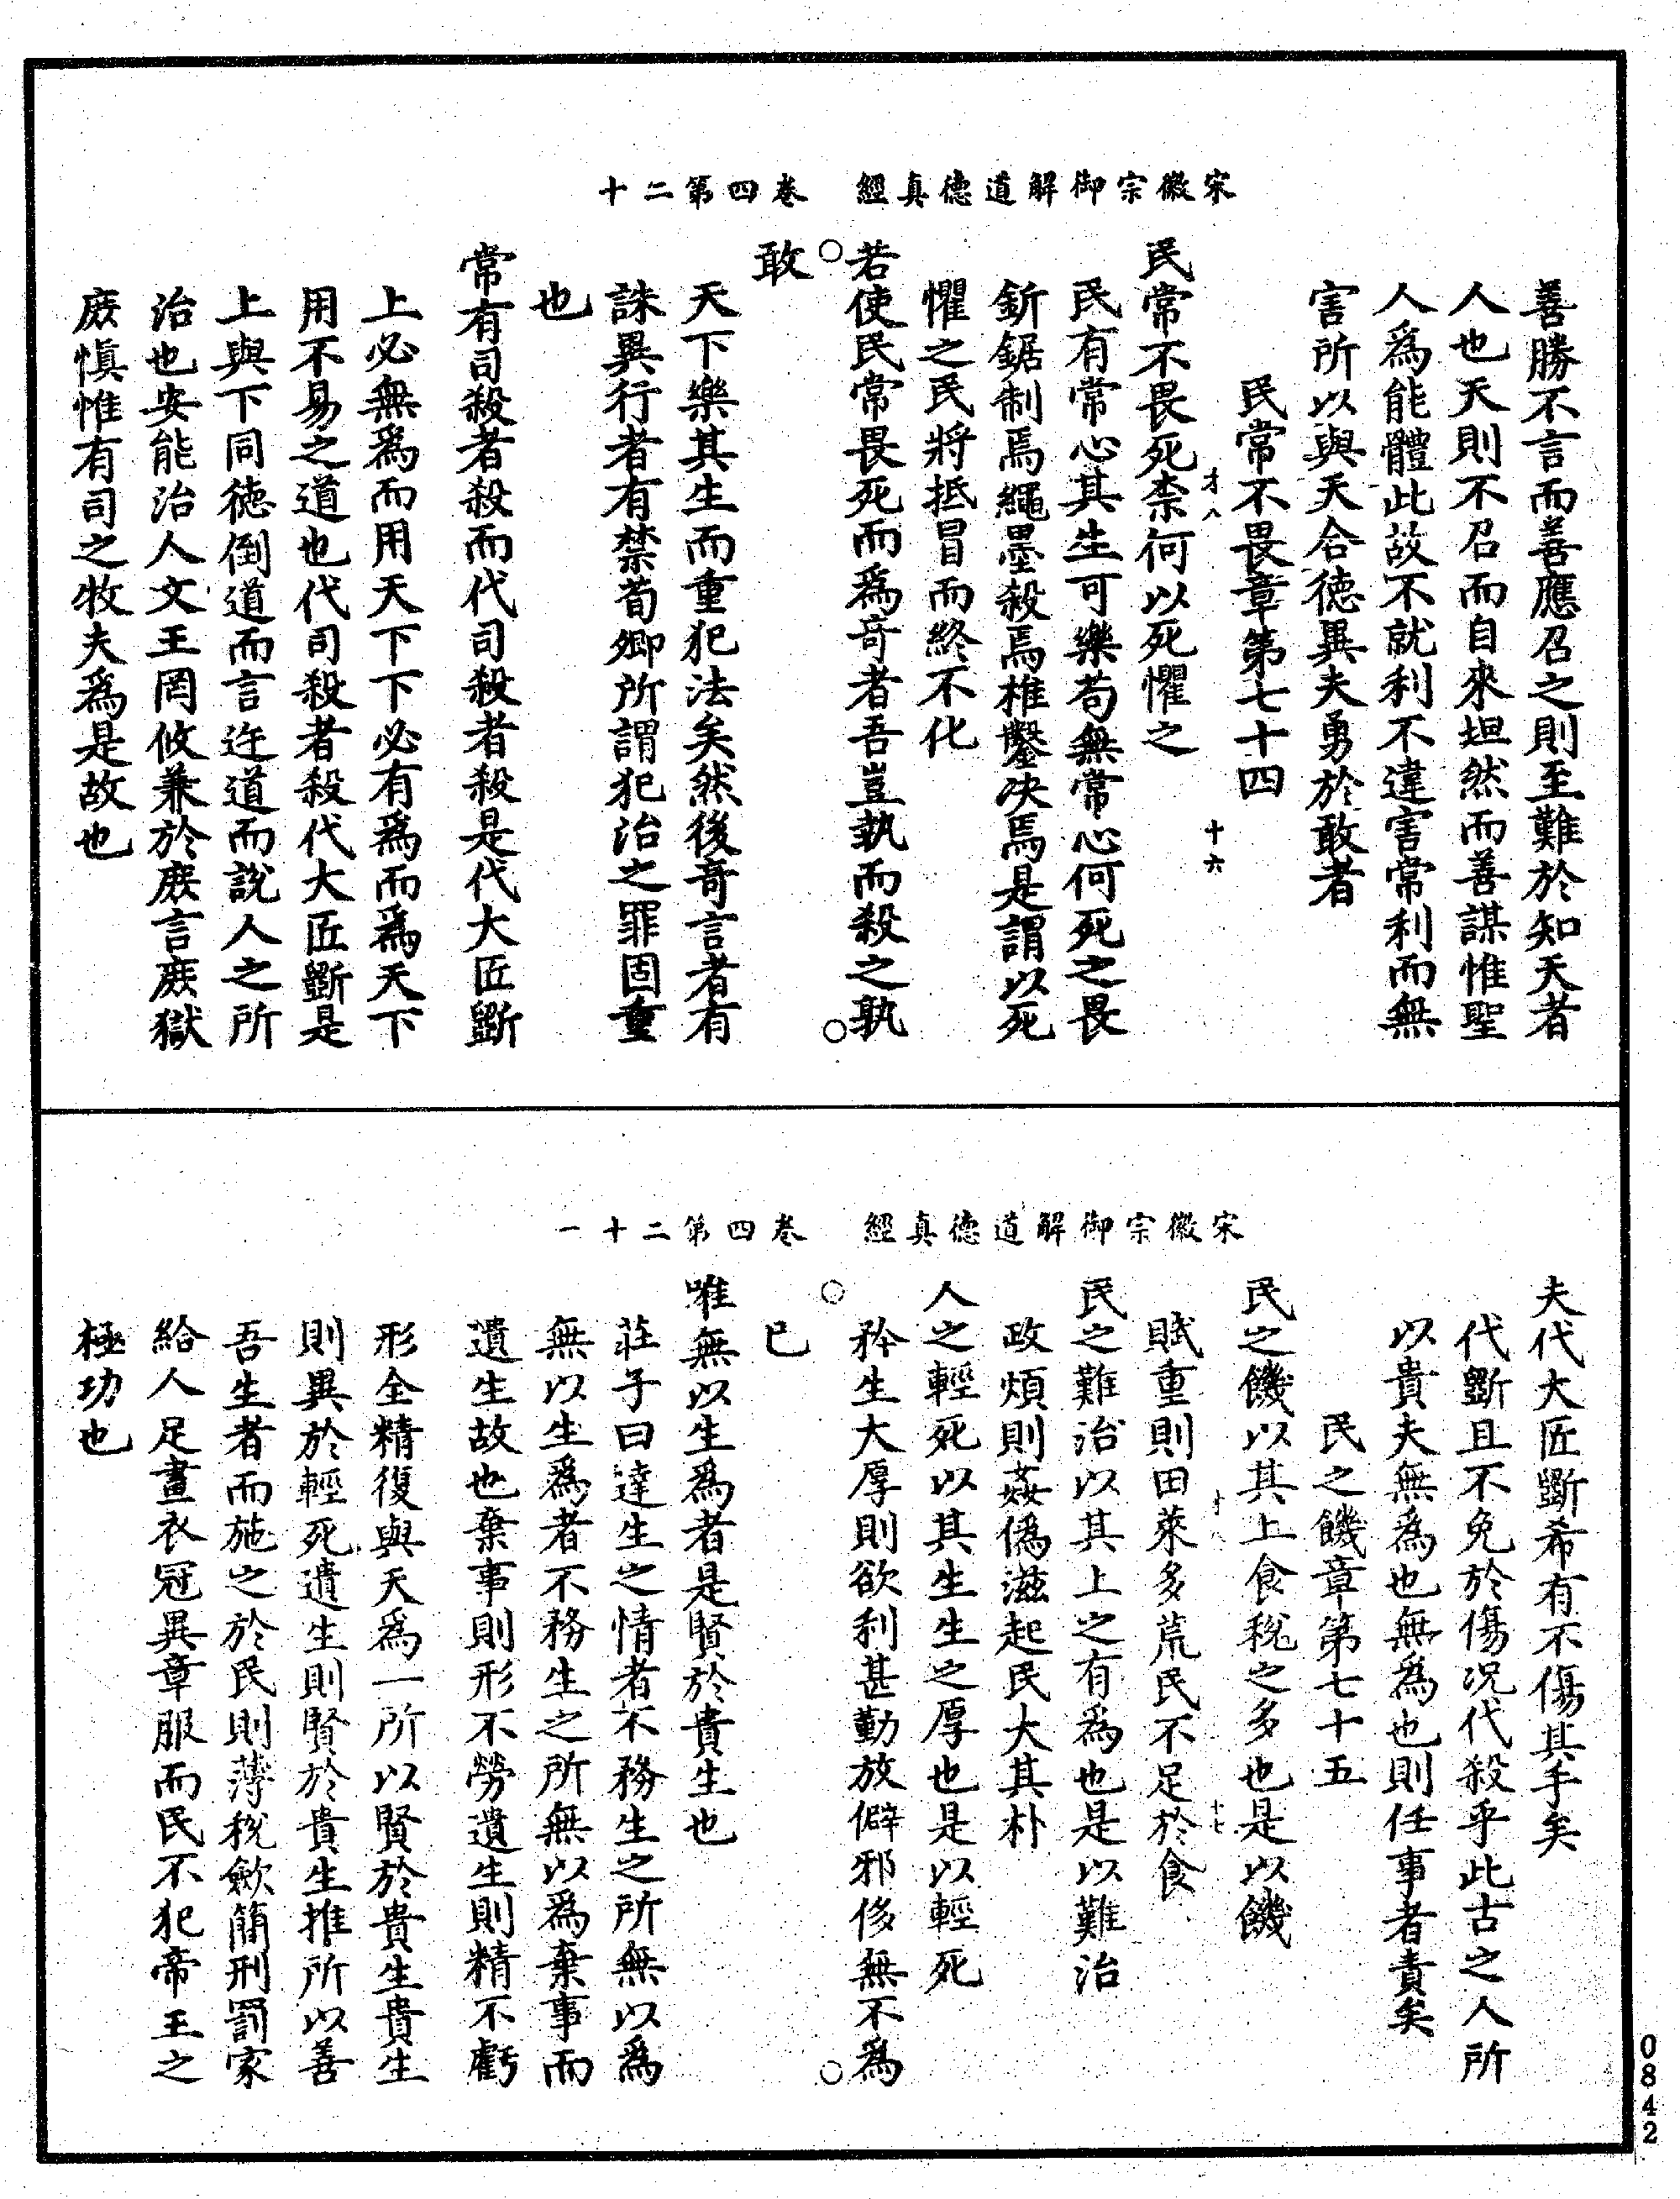 宋徽宗御解道德真經　卷四第二十
善勝不言而善應召之則至難於知天者
人也天則不召而自來坦然而善謀惟聖
人爲能體此故不就利不違害常利而無
害所以與天合德異夫勇於敢者
民常不畏章第七十四
才八　十六
民常不畏死柰何以死懼之
民有常心其生可樂苟無常心何死之畏
釿鋸制焉繩墨殺焉椎鑿决焉是謂以死
懼之民將抵冒而終不化
若使民常畏死而爲奇者吾豈執而殺之孰
敢
天下樂其生而重犯法矣然後奇言者有
誅異行者有禁荀卿所謂犯治之罪固重
也
常有司殺者殺而代司殺者殺是代大匠斲
上必無爲而用天下下必有爲而爲天下
用不易之道也代司殺者殺代大匠斲是
上與下同德倒道而言迕道而說人之所
治也安能治人文王罔攸兼於庶言庶獄
庶愼惟有司之牧夫爲是故也
宋徽宗御解道德真經　卷四第二十一
夫代大匠斲希有不傷其手矣
代斲且不免於傷况代殺乎此古之人所
以貴夫無爲也無爲也則任事者責矣
民之饑章第七十五
才八　十七
民之饑以其上食稅之多也是以饑
賦重則田萊多荒民不足於食
民之難治以其上之有爲也是以難治
政煩則姦僞滋起民大其朴
人之輕死以其生生之厚也是以輕死
矜生大厚則欲利甚勤放僻邪侈無不爲
已
唯無以生爲者是賢於貴生也
莊子曰達生之情者不務生之所無以爲
無以生爲者不務生之所無以爲棄事而
遺生故也棄事則形不勞遺生則精不虧
形全精復與天爲一所以賢於貴生貴生
則異於輕死遺生則賢於貴生推所以善
吾生者而施之於民則薄稅歛簡刑罰家
給人足畫衣冠異章服而民不犯帝王之
極功也
0842